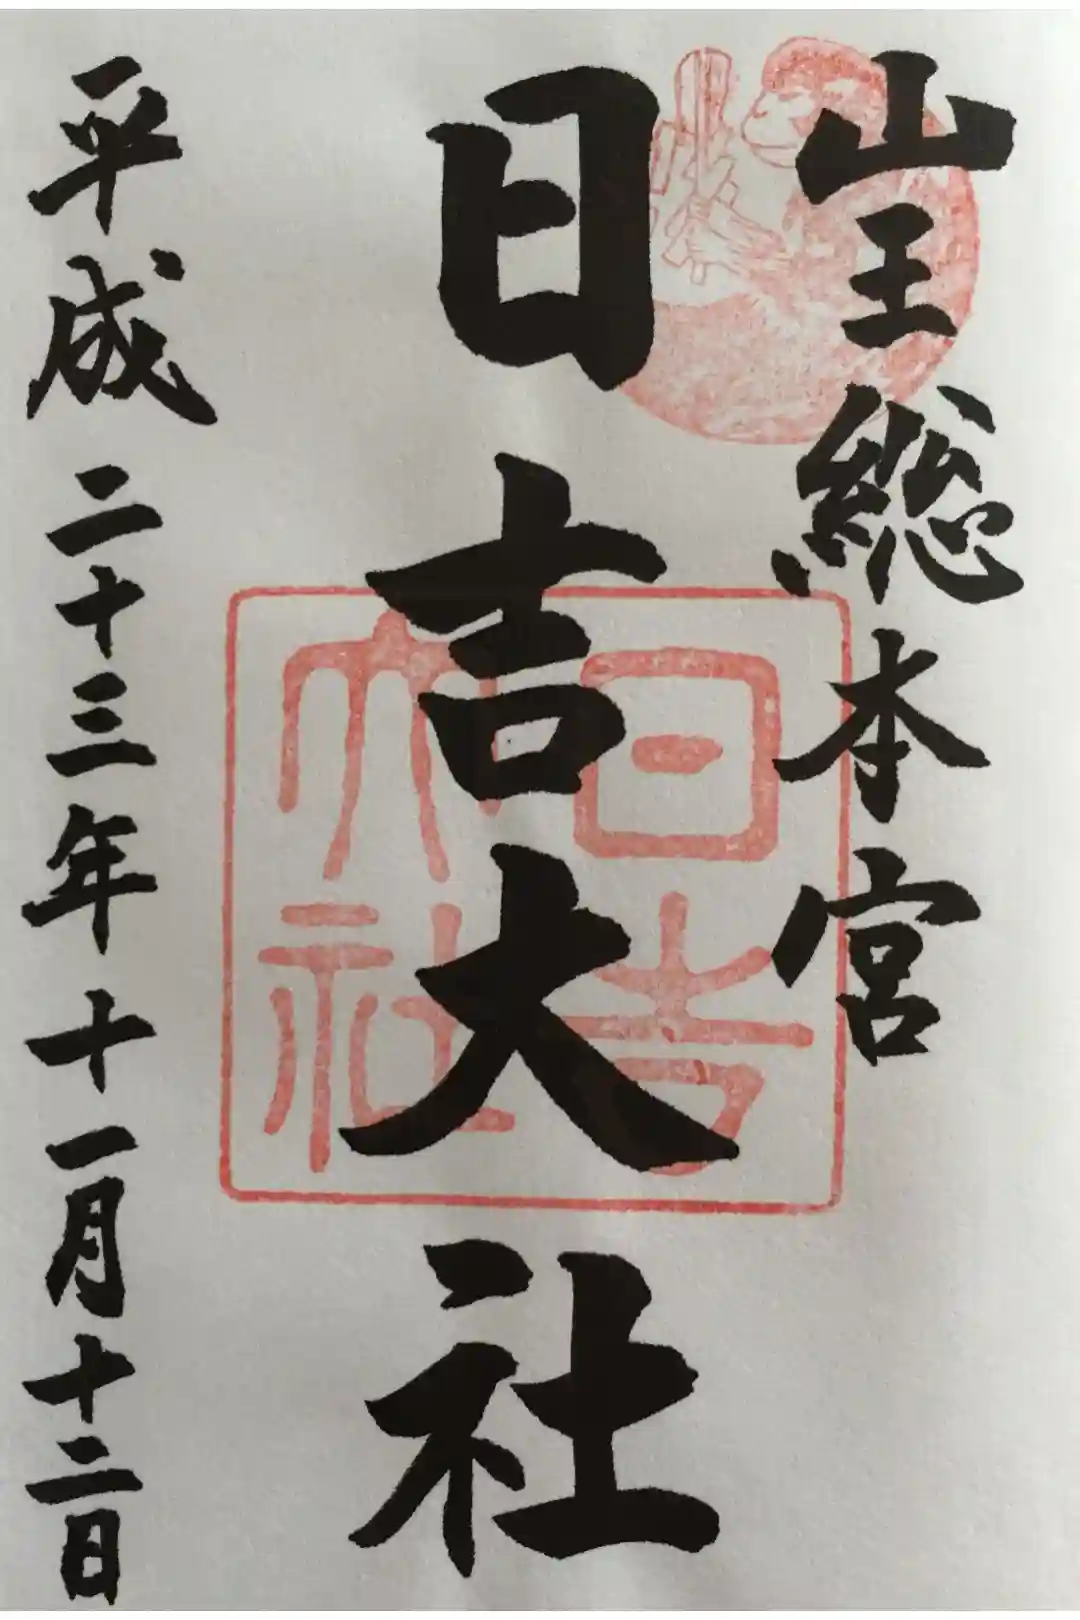 山王総本宮
日吉大社
日吉
大社
平成二十三年十一月十二日